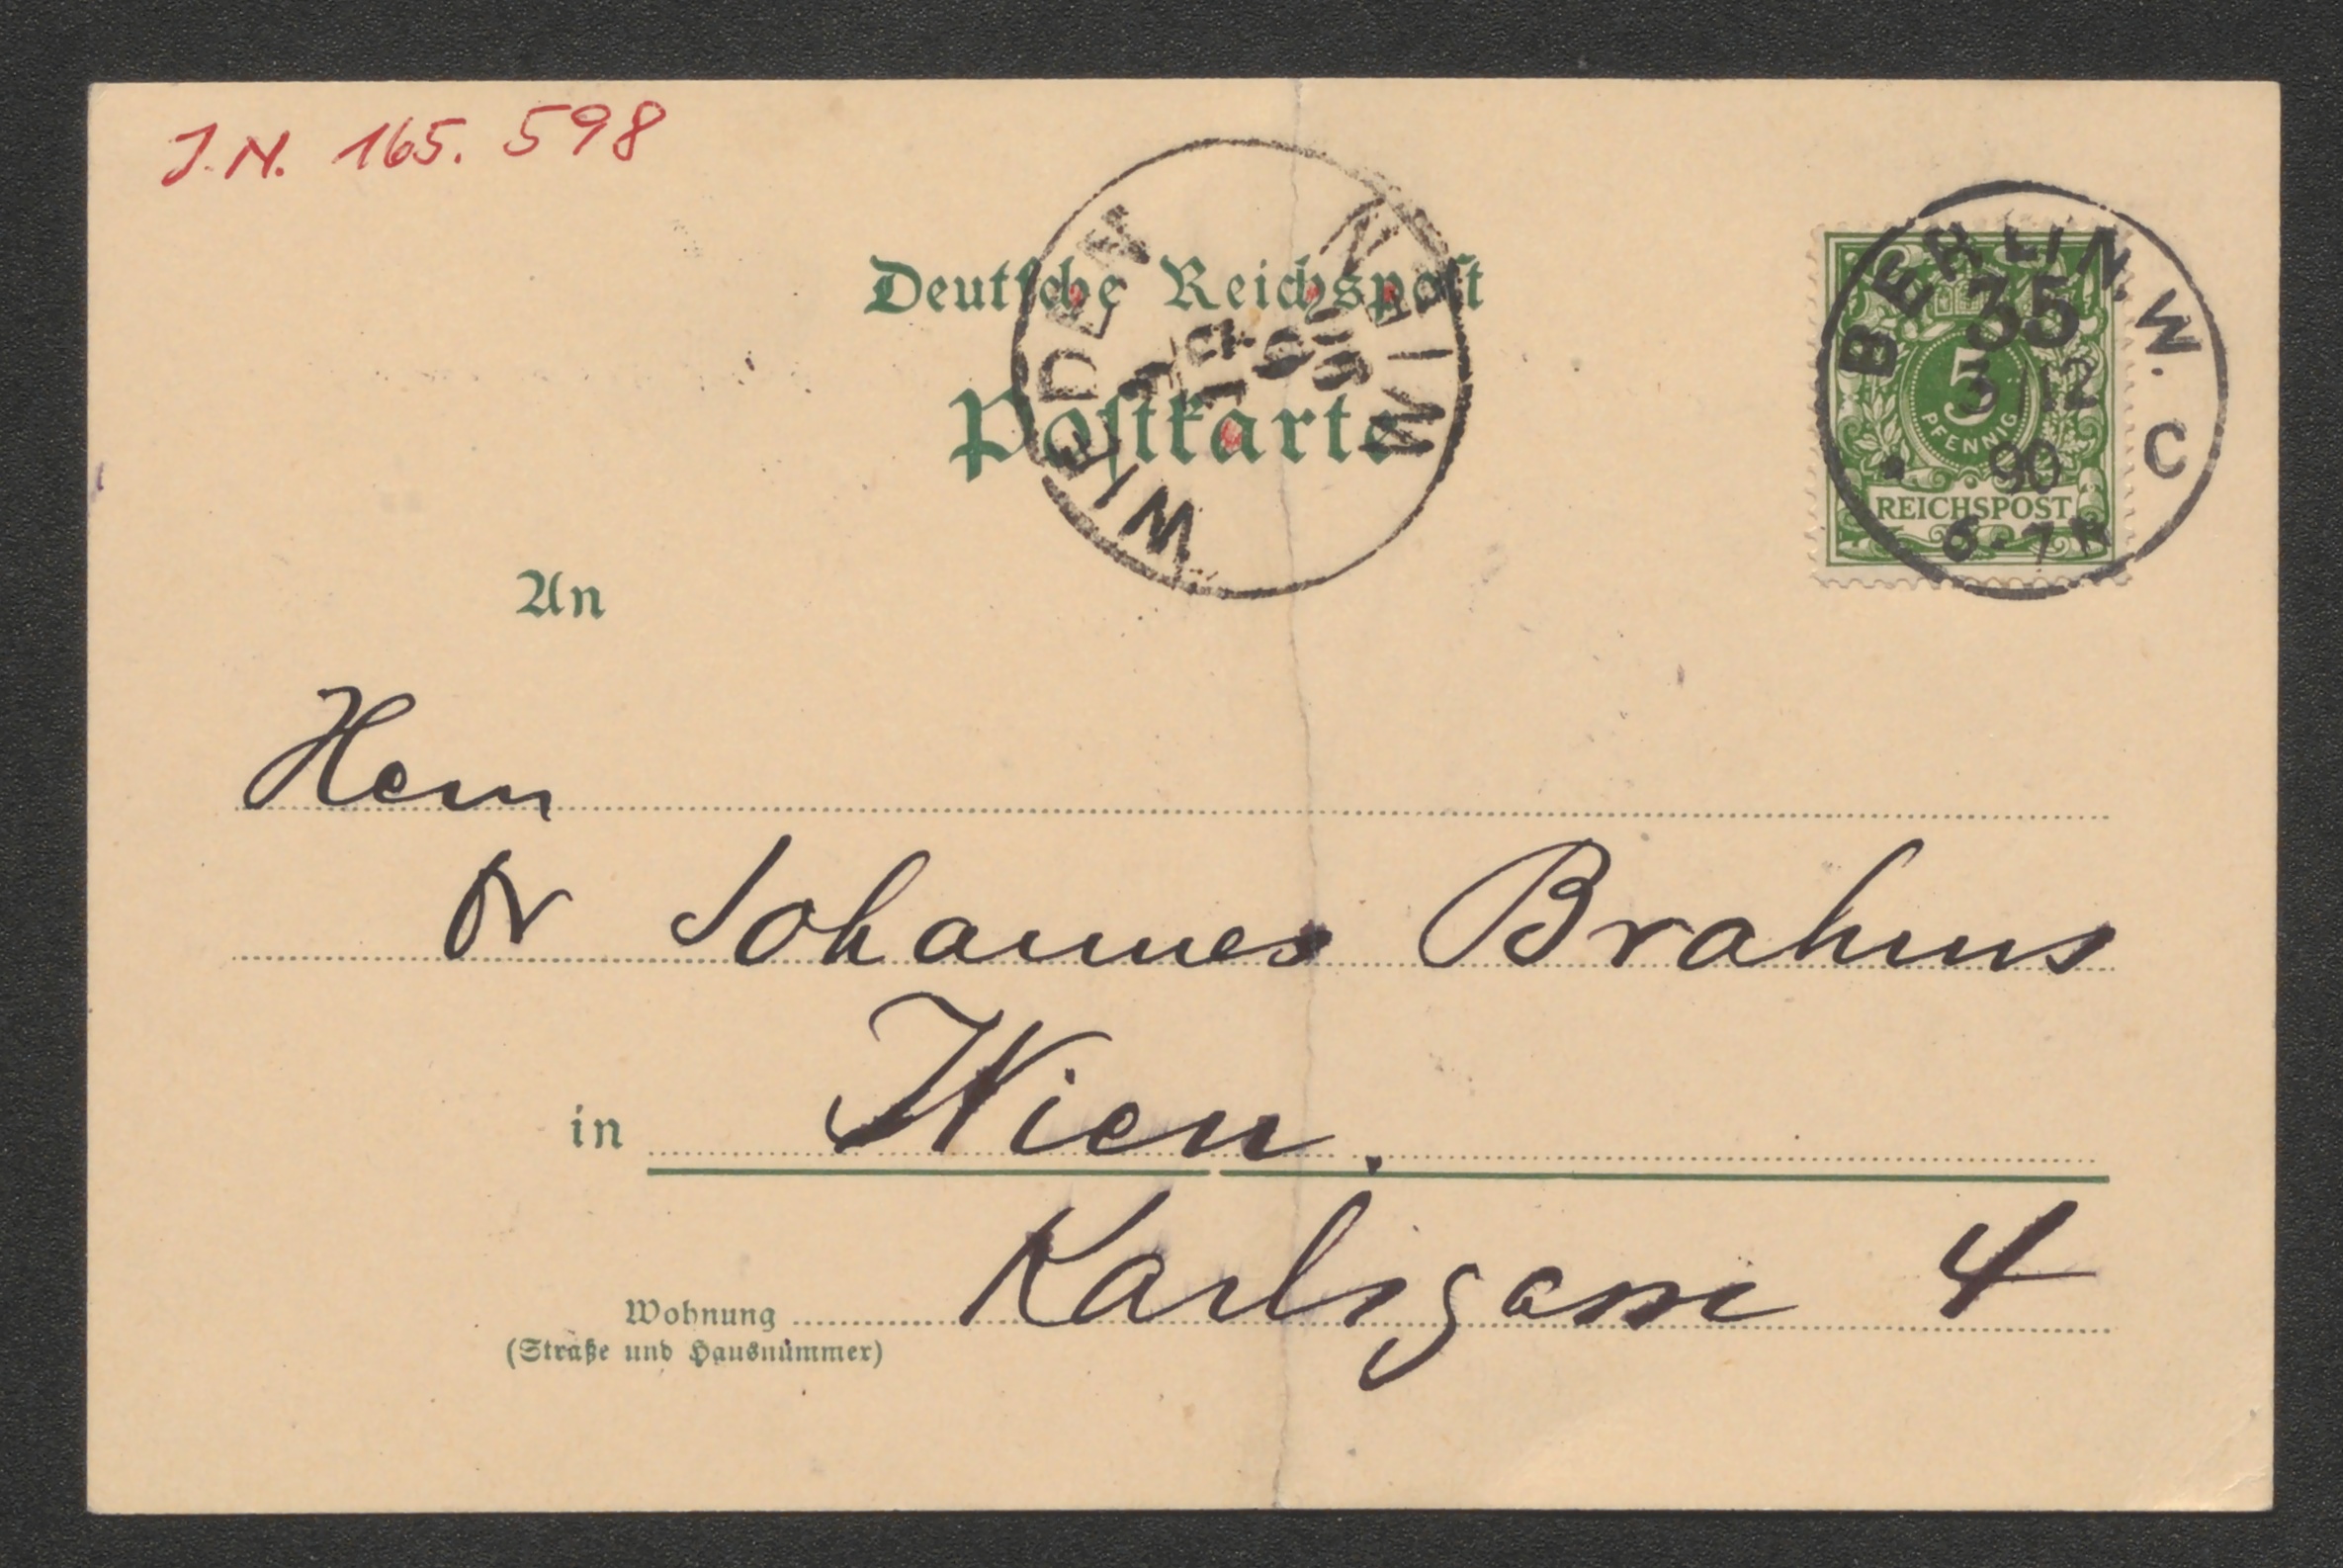 J.N. 165.598
Deutsche Reichspost
Postkarte
WIEDEN
WIEN
BERLIN, W.
35
3/12
90
6-7N
C
5
PFENNIG
REICHSPOST
An
Herrn
Dr Johannes Brahms
in Wien.
Karlsgasse 4
Wohnung
(Straße und Hausnummer)